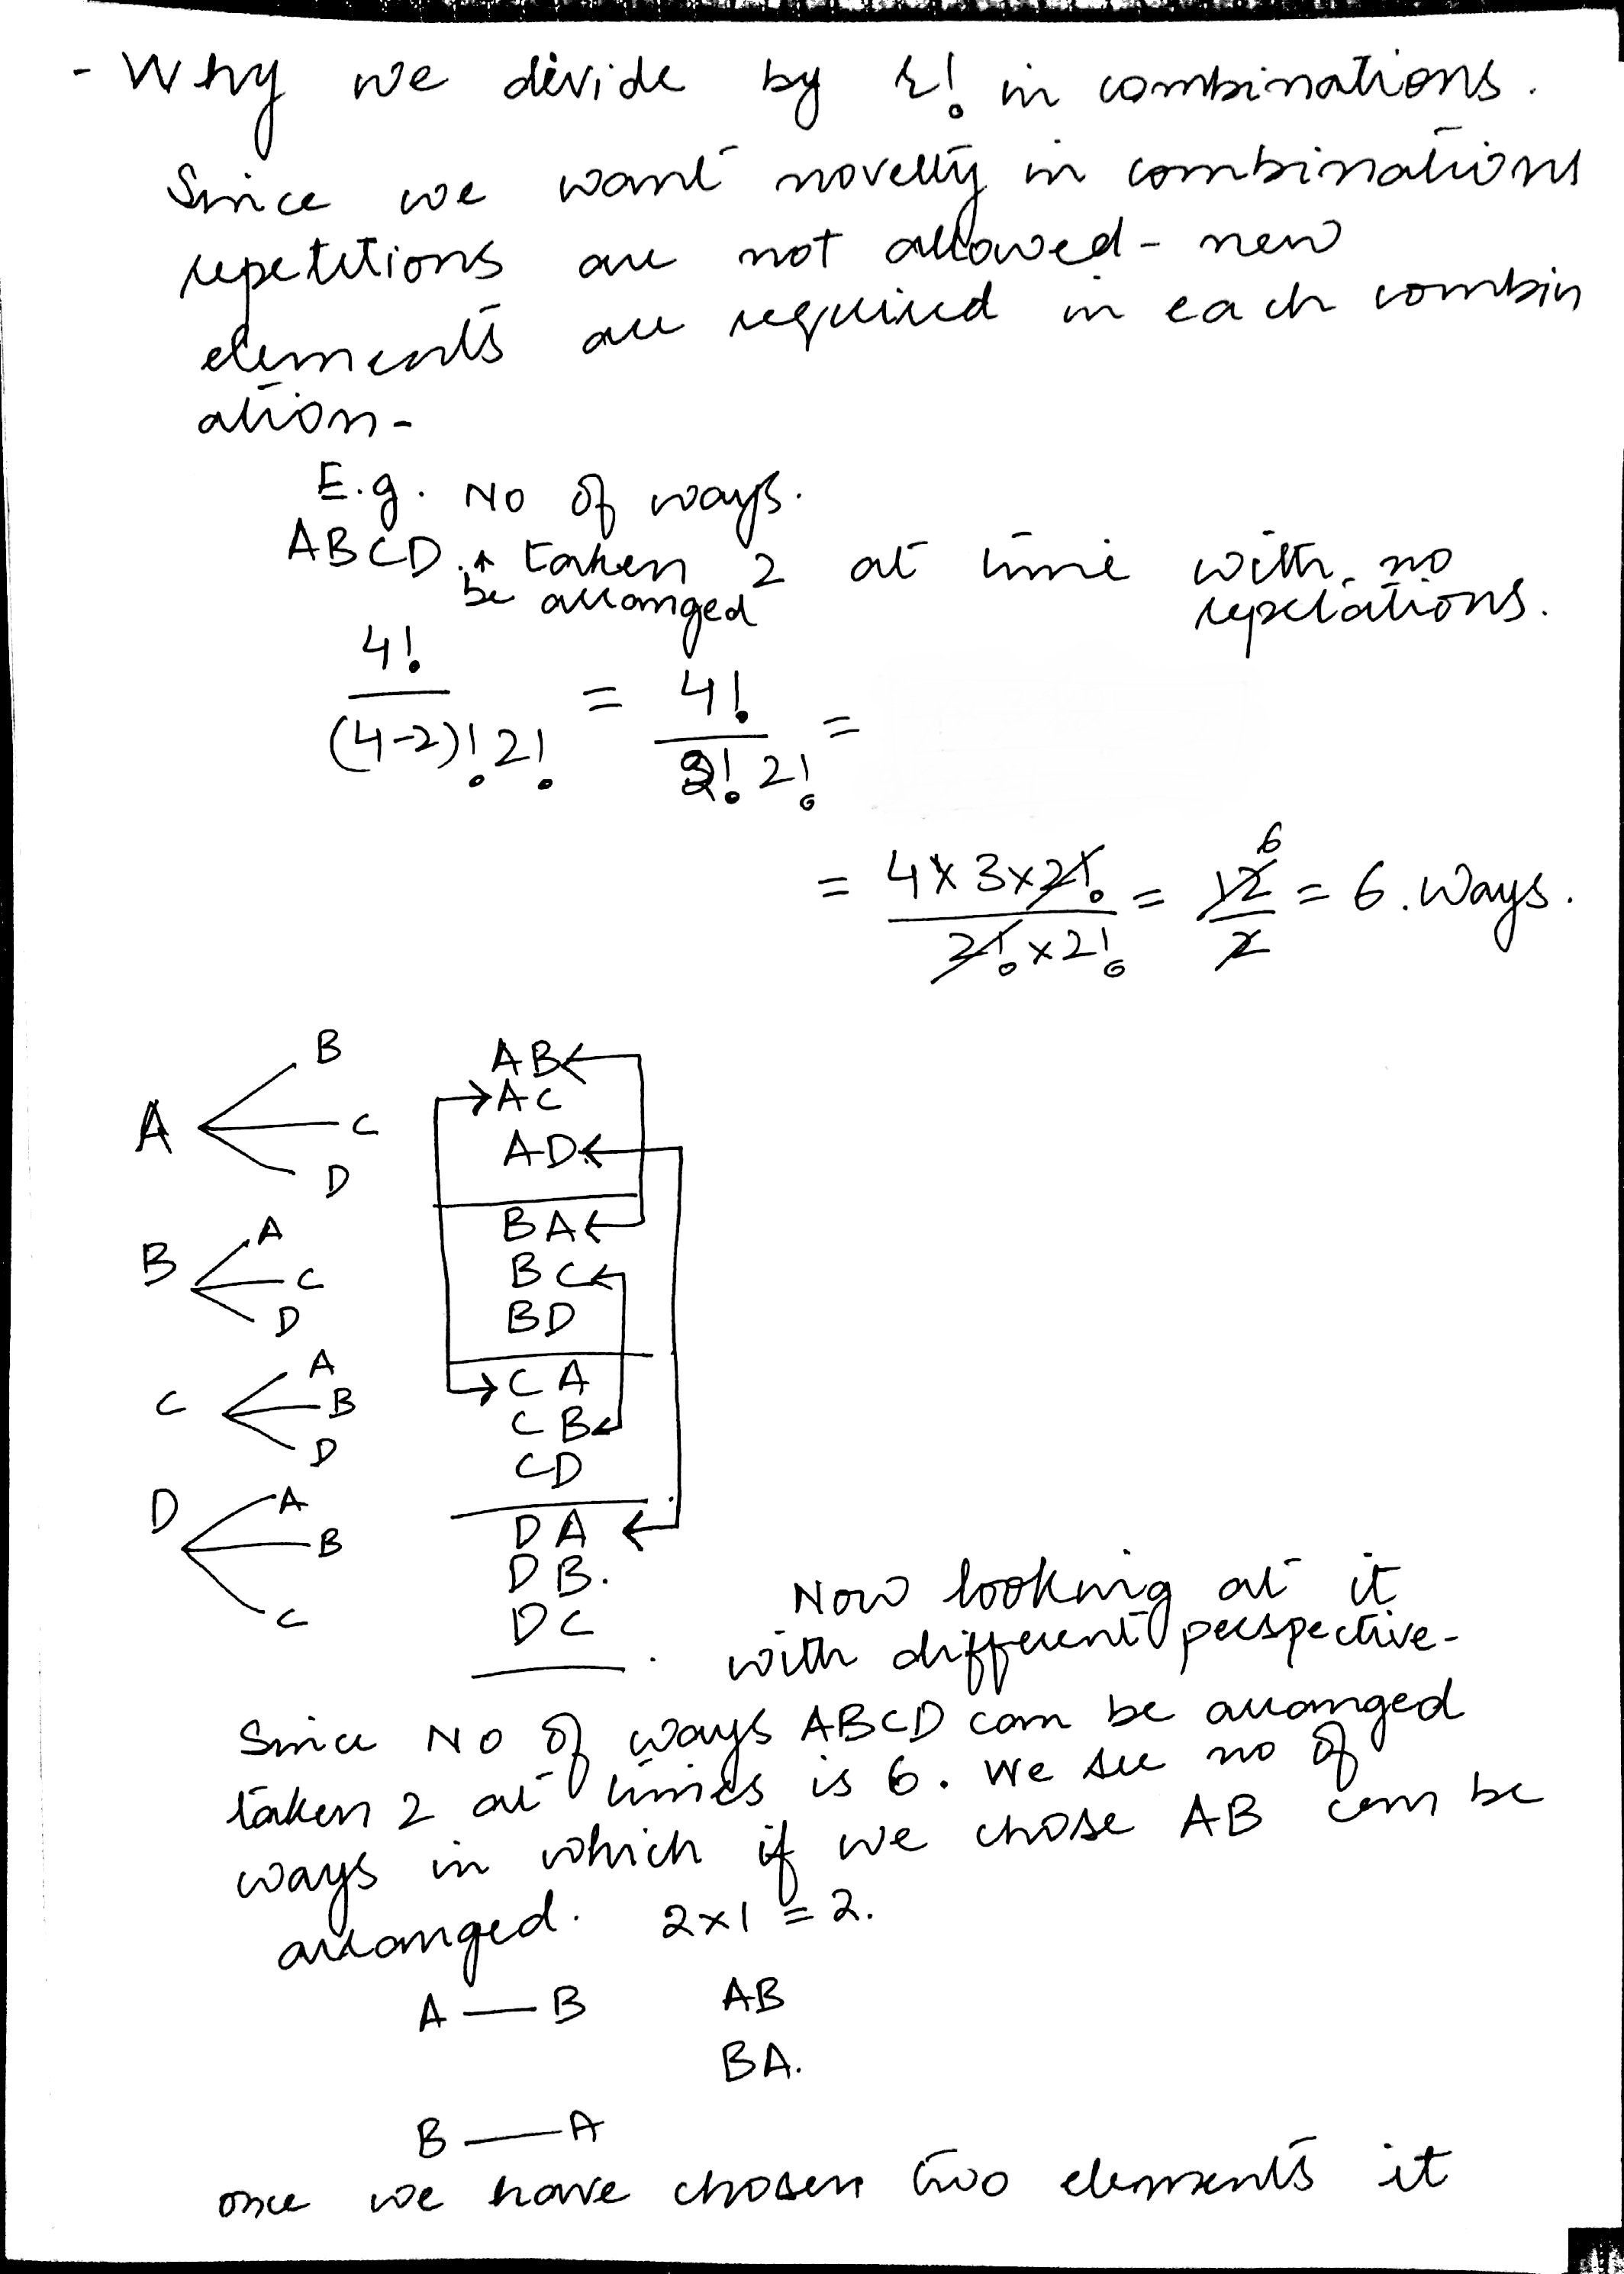 - Why we divide by r! in combinations.
Since we want novelty in combinations
repetitions are not allowed - new
elements are required in each combin
ation -
E.g. No of ways.
ABCD taken 2 at time with no
be arranged repetations.
4! / (4-2)! 2! = 4! / 2! 2! =
= 4 x 3 x 2! / 2! x 2! = 12 / 2 6 = 6. Ways.
A B C D
AB
AC
AD
B A C D
BA
BC
BD
C A B D
CA
CB
CD
D A B C
DA
DB.
DC
Now looking at it
with different perspective -
Since No of ways ABCD can be arranged
taken 2 at times is 6. We see no of
ways in which if we chose AB can be
arranged. 2x1 = 2.
A — B AB
BA.
B — A
once we have chosen two elements it